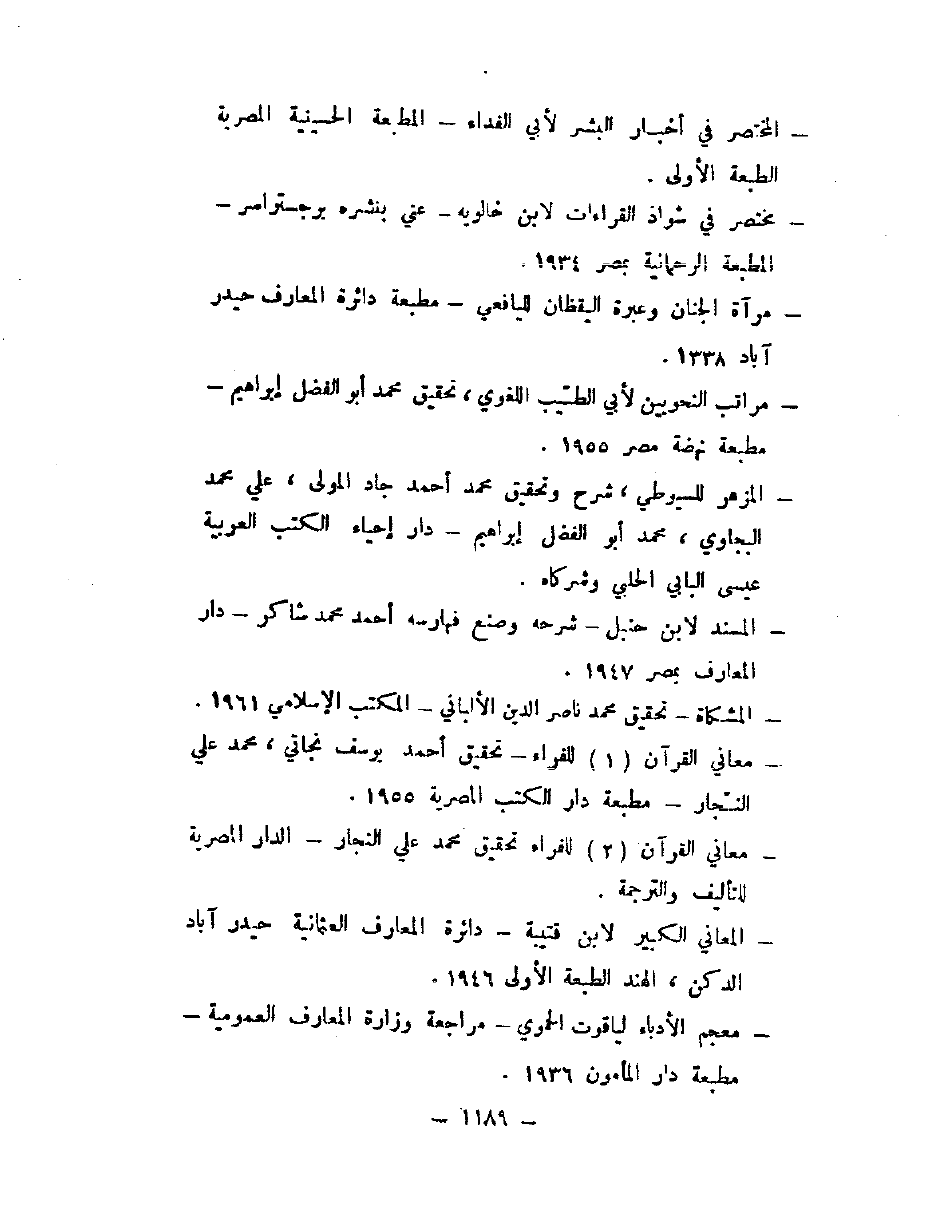 – المختصر في أخبار البشر لأبي الفداء – المطبعة الحسينية المصرية
الطبعة الأولى .
– مختصر في شواذ القراءات لابن خالويه – عني بنشره برجستراسر –
المطبعة الرحمانية بمصر ١٩٣٤ .
– مرآة الجنان وعبرة اليقظان لليافعي – مطبعة دائرة المعارف حيدر
آباد ١٣٣٨ .
– مراتب النحويين لأبي الطيّب اللغوي ، تحقيق محمد أبو الفضل إبراهيم –
مطبعة نهضة مصر ١٩٥٥ .
– المزهر للسيوطي ، شرح وتحقيق محمد أحمد جاد المولى ، علي محمد
البجاوي ، محمد أبو الفضل إبراهيم – دار إحياء الكتب العربية
عيسى البابي الحلبي وشركاه .
– المسند لابن حنبل – شرحه وصنع فهارسه أحمد محمد شاكر – دار
المعارف بمصر ١٩٤٧ .
– المشكاة – تحقيق محمد ناصر الدين الألباني – المكتب الإسلامي ١٩٦١ .
– معاني القرآن ( ١ ) للفراء – تحقيق أحمد يوسف نجاتي ، محمد علي
النّجار – مطبعة دار الكتب المصرية ١٩٥٥ .
– معاني القرآن ( ٢ ) للفراء تحقيق محمد علي النجار – الدار المصرية
للتأليف والترجمة .
– المعاني الكبير لابن قتيبة – دائرة المعارف العثمانية حيدر آباد
الدكن ، الهند الطبعة الأولى ١٩٤٦ .
– معجم الأدباء لياقوت الحموي – مراجعة وزارة المعارف العمومية –
مطبعة دار المأمون ١٩٣٦ .
– ١١٨٩ –